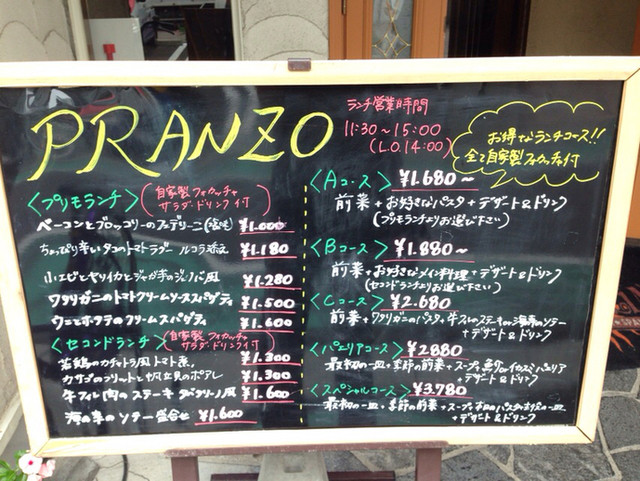 PRANZO
ランチ営業時間
11:30〜15:00
(L.O.14:00)
お得なランチコース!!
全て自家製フォカッチャ付
<プリモランチ>
(自家製フォカッチャ
サラダ・ドリンク付)
ベーコンとブロッコリーのフェデリーニ(塩味) ¥1.000
ちょっぴり辛いタコのトマトラグー ルコラ添え ¥1.180
小エビとヤリイカとジャガ芋のジェノバ風 ¥1.280
ワタリガニのトマトクリームソーススパゲティ ¥1.500
ウニとホタテのクリームスパゲティ ¥1.600
<セコンドランチ>
(自家製フォカッチャ
サラダ・ドリンク付)
若鶏のカチャトラ風トマト煮 ¥1.300
カサゴのフリットと帆立貝のポアレ ¥1.300
牛フィレ肉のステーキ タリアータ風 ¥1.600
海の幸のソテー盛合せ ¥1.600
<Aコース> ¥1.680〜
前菜+お好きなパスタ+デザート&ドリンク
(プリモランチよりお選び下さい)
<Bコース> ¥1.880〜
前菜+お好きなメイン料理+デザート&ドリンク
(セコンドランチよりお選び下さい)
<Cコース> ¥2.680
前菜+ワタリガニのパスタ+牛フィレのステーキor海の幸のソテー
+デザート&ドリンク
<パエリアコース> ¥2880
最初の一皿+季節の前菜+スープ+魚介のパエリア
+デザート&ドリンク
<スペシャルコース> ¥3.780
最初の一皿+季節の前菜+スープ+本日のパスタ+お肉の一皿
+デザート&ドリンク